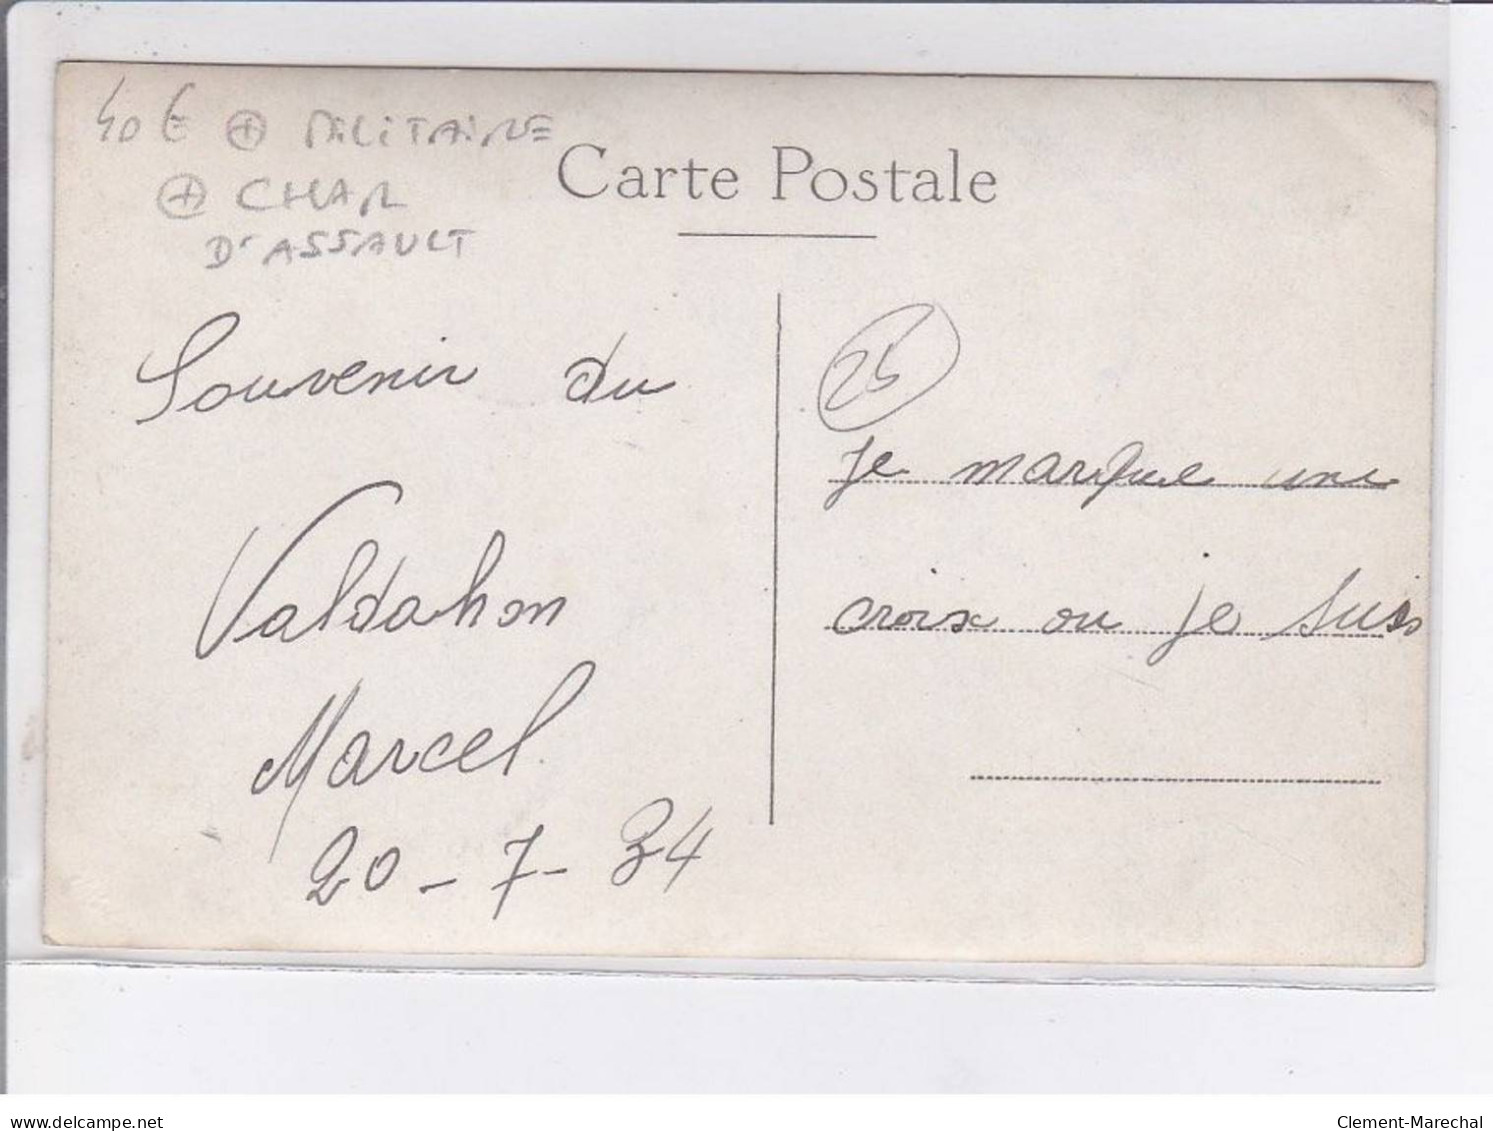 40 € + MILITAIRE
+ CHAR
D'ASSAULT
Carte Postale
Souvenir du
Valdahon
Marcel
20 - 7 - 34
25
Je marque une
croix ou je suis
www.delcampe.net
Clement-Marechal